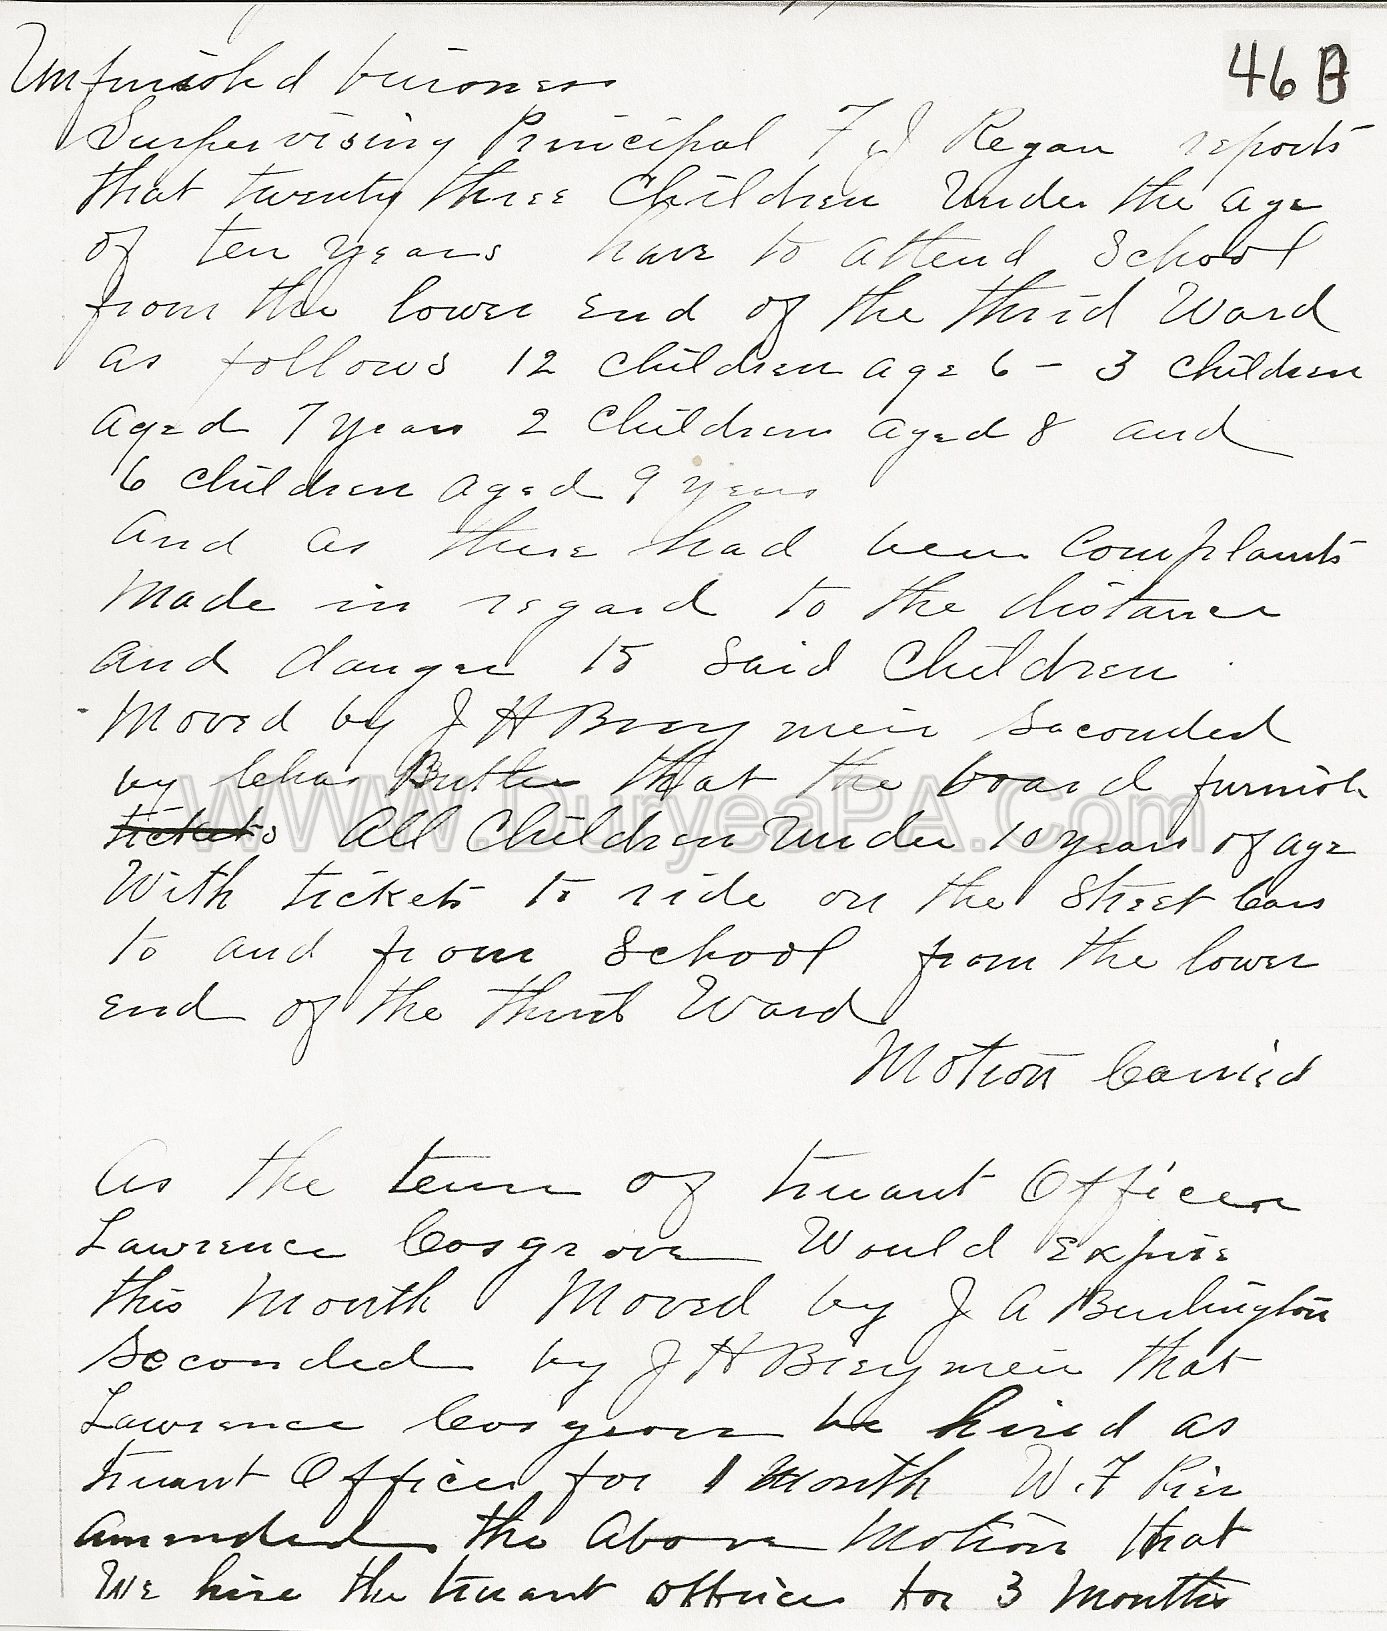 46 B
Unfinished business
Supervising Principal F J Regan reports
that twenty three Children Under the age
of ten years have to attend School
from the lower end of the third Ward
as follows 12 children age 6 - 3 children
aged 7 years 2 children aged 8 and
6 children aged 9 years
And as there had been Complaints
Made in regard to the distance
and danger to said Children
Moved by J H Bierymeir Seconded
by Chas Butler that the board furnish
tickets All Children Under 10 years of age
With tickets to ride on the Street Cars
to and from School from the lower
end of the third Ward
Motion Carried
As the term of truant Officer
Lawrence Cosgrove Would Expire
this Month Moved by J A Burlington
Seconded by J H Bierymeir that
Lawrence Cosgrove be hired as
truant Officer for 1 Month W. F Pier
amended the above Motion that
We hire the truant officer for 3 Months
WWW.DuryeaPA.Com